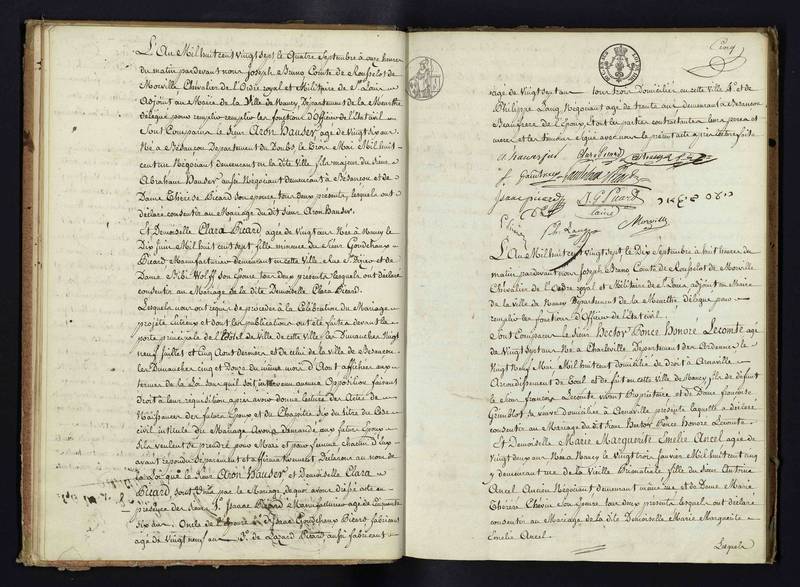 L'An Mil huit cent Vingt sept le Quatre Septembre à onze heures
du matin pardevant nous Joseph Bruno Comte de Rousselot de
Morville, Chevalier de l'Ordre royal et Militaire de St Louis
Adjoint au Maire de la Ville de Nancy, Département de la Meurthe
délégué pour remplir les fonctions d'Officier de l'Etat civil
Sont Comparus le Sieur Aron Hauser agé de Vingt six ans
Né à Besançon Département du Doubs le Mai Mil huit
cent un Négociant demeurant en la dite Ville fils majeur du Sieur
Abraham Hauser aussi Négociant demeurant à Besançon et de
Dame Thérèse Picard son épouse tous deux présents, lesquels ont
déclaré consentir au Mariage du dit Sieur Aron Hauser.
Et Demoiselle Clara Picard agée de Vingt ans Née à Nancy le
Dix Juin Mil huit cent sept fille mineure du Sieur Goudchaux
Picard Manufacturier demeurant en cette Ville Rue St Dizier et de
Dame Bibi Wolff son Epouse tous deux présents lesquels ont déclaré
consentir au Mariage de la dite Demoiselle Clara Picard.
Lesquels nous ont requis de procéder à la Célébration du Mariage
projeté entre eux et dont les publications ont été faites devant la
porte principale de l'Hôtel de Ville de cette Ville les Dimanches Vingt
neuf Juillet et Cinq Aout dernier et de celui de la ville de Besançon
les Dimanches cinq et Douze du même mois d'Aout affichées aux
termes de la Loi sans qu'il soit intervenu aucune Opposition faisant
droit à leur réquisition après avoir donné lecture des Actes de
Naissances des futurs Epoux et du Chapitre Six du titre du Code
civil intitulé du Mariage Avons demandé aux futurs Epoux
s'ils veulent se prendre pour Mari et pour femme chacun d'eux
ayant répondu séparément et affirmativement Déclarons au nom de
la Loi que le Sieur Aron Hauser et Demoiselle Clara
Picard sont Unis par le Mariage de quoi avons dressé acte en
présence des Sieurs Isaac Picard Manufacturier agé de Cinquante
six ans Oncle de l'épouse Isaac Goudchaux Picard fabricant
agé de Vingt neuf ans de Lazard Picard aussi fabricant
Cinq
agé de Vingt sept ans tous trois Domiciliés en cette Ville et de
Philippe Lang Négociant agé de trente ans demeurant à Besançon
Beaufrère de l'Epoux, Et ont les parties contractantes leurs pères et
mères et les témoins signé avec nous le présent acte après lecture faite
a. hauser fils Clara Picard
Isaac picard A. G Picard
Ph. Lang Morville
L'An Mil huit cent Vingt sept, le Dix Septembre à huit heures du
matin pardevant nous Joseph Bruno Comte de Rousselot de Morville
Chevalier de l'Ordre royal et Militaire de St Louis, adjoint au Maire
de la ville de Nancy Département de la Meurthe délégué pour
remplir les fonctions d'Officier de l'Etat civil.
Sont Comparus le Sieur Hector Ponce Honoré Lecomte agé
de Vingt deux ans Né à Charleville Département des Ardennes le
Vingt neuf Mai Mil huit cent domicilié de droit à
Arrondissement de Toul et de fait en cette ville de Nancy, fils de défunt
le Sieur françois Lecomte vivant Propriétaire et de Dame françoise
Grimblot sa veuve Domiciliée à présente laquelle a déclaré
consentir au Mariage du dit Sieur Hector Ponce Honoré Lecomte.
Et Demoiselle Marie Marguerite Emelie Ancel agée de
Vingt deux ans Née à Nancy le Vingt trois Janvier Mil huit cent cinq
y demeurant rue de la Vieille Primatiale fille du Sieur Antoine
Ancel Ancien Négociant demeurant même rue et de Dame Marie
Thérèse son Epouse tous deux présents lesquels ont déclaré
consentir au Mariage de la dite Demoiselle Marie Marguerite
Emelie Ancel.
Lesquels